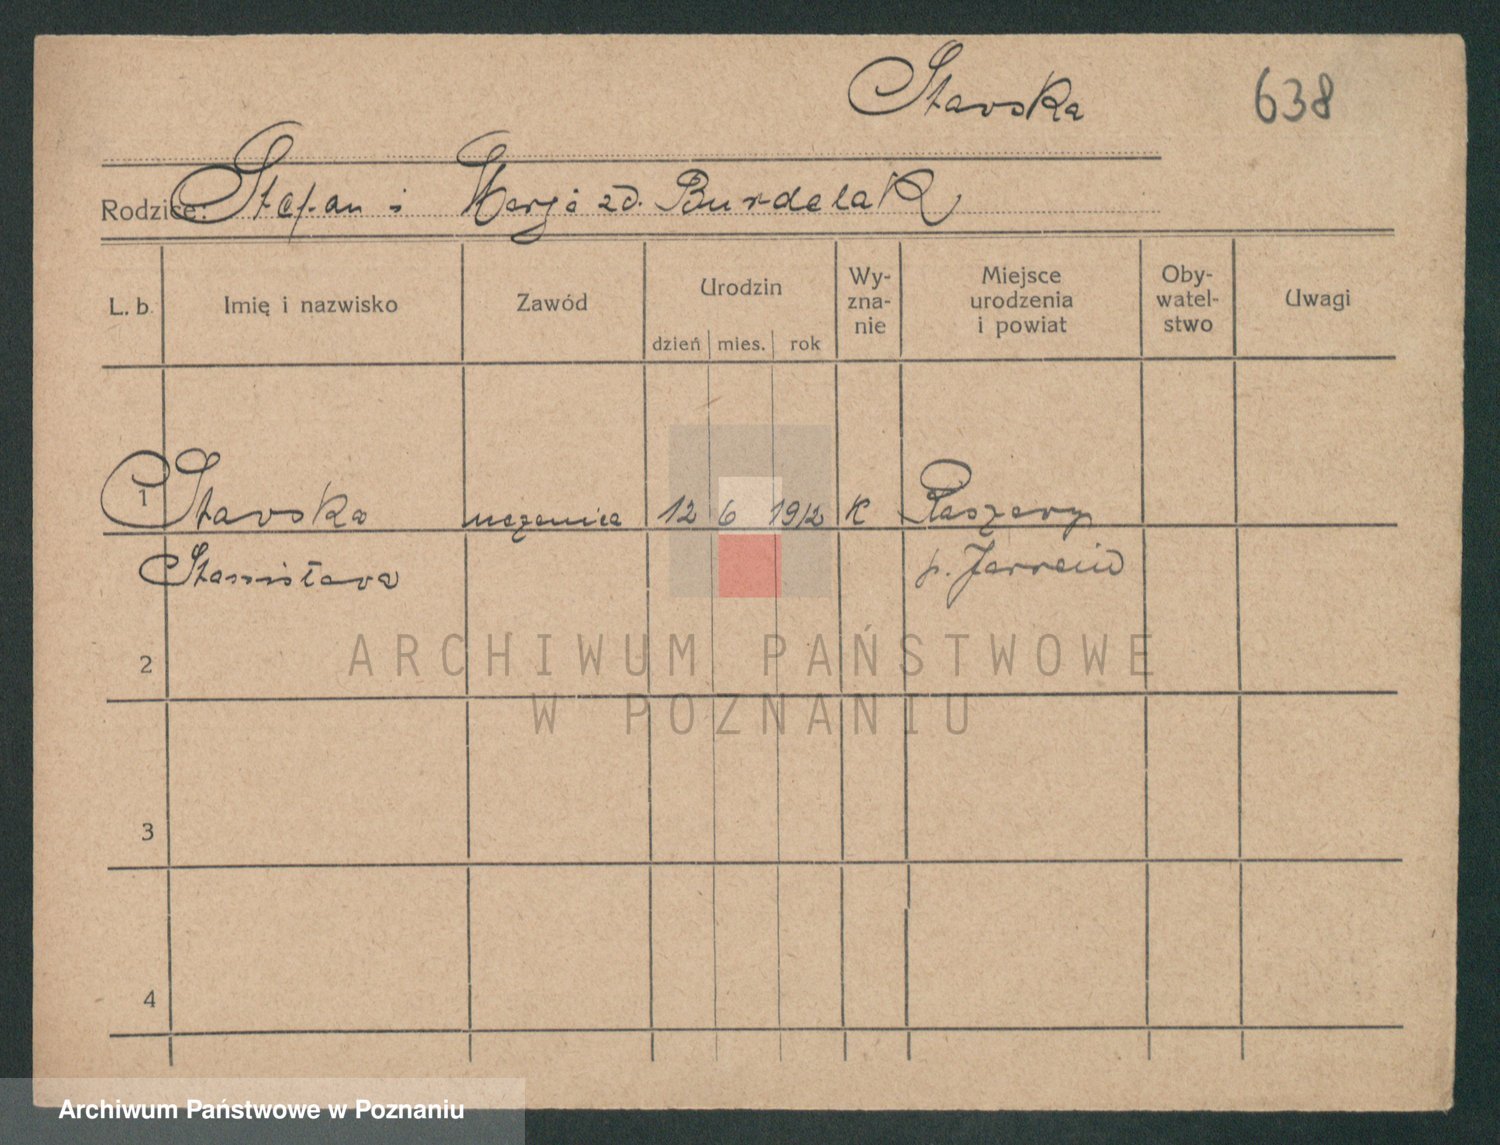 Stavska 638
Rodzice: Stefan i Marja zd. Burdelak
L. b. Imię i nazwisko Zawód Urodzin dzień mies. rok Wyznanie Miejsce urodzenia i powiat Obywatelstwo Uwagi
1 Stavska uczenica 12 6 1912 K
Stanisława p. Jarocin
2
3
4
ARCHIWUM PAŃSTWOWE
W POZNANIU
Archiwum Państwowe w Poznaniu